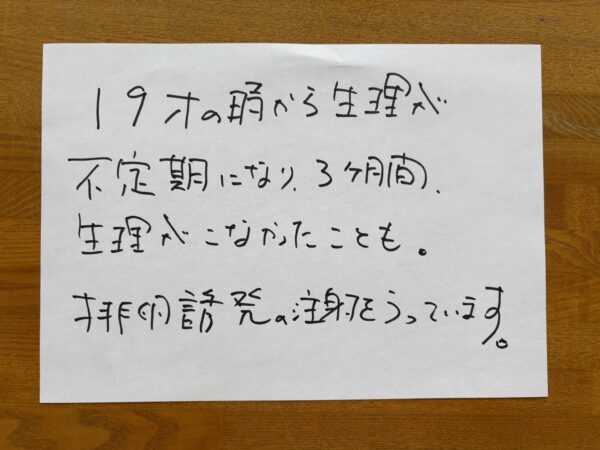 19才の時から生理が
不定期になり、3ヶ月間、
生理がこなかったことも。
排卵誘発の注射をうっています。